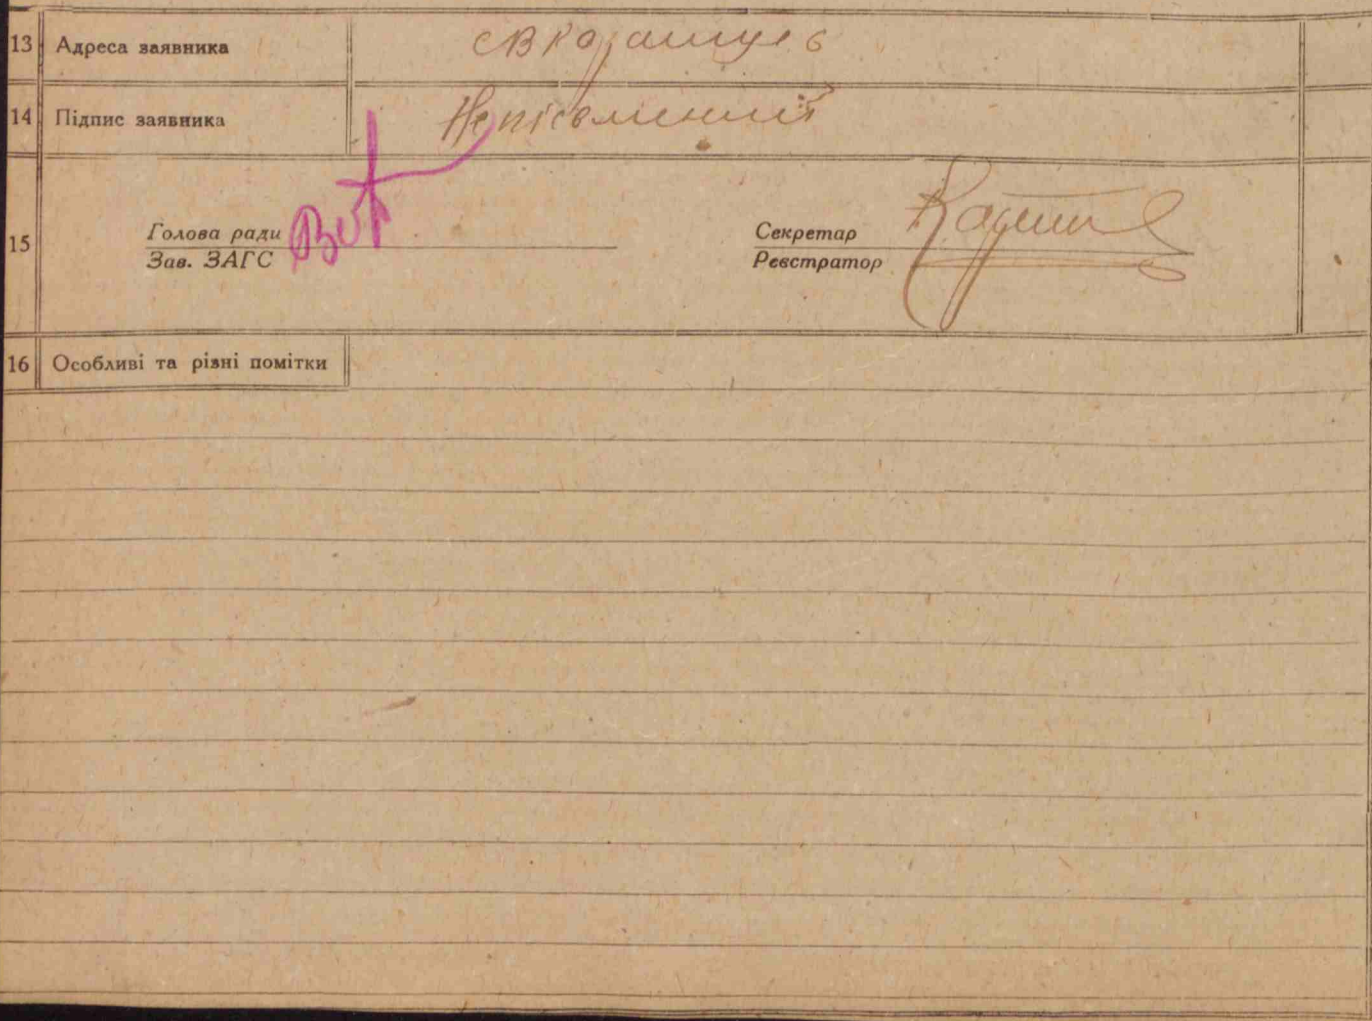 13 Адреса заявника
14 Підпис заявника Непісьменний
15
Голова ради
Зав. ЗАГС
Секретар
Реєстратор
16 Особливі та різні помітки